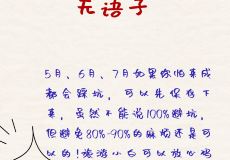 无语子
5月、6月、7月如果你怕来成
都会踩坑，可以先保存下
来，虽然不能说100%避坑，
但避免80%-90%的麻烦还是可
以的！旅游小白可以放心码